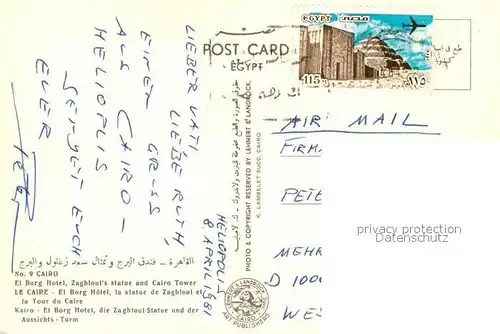 LIEBER VATI,
LIEBE RUTH,
EINEN GRUSS
AUS CAIRO -
HELIOPLIS
SENDET EUCH
EUER
HELIOPOLIS
8. APRIL 1981
القاهرة - فندق البرج وتمثال سعد زغلول والبرج
No. 9 CAIRO
El Borg Hotel, Zaghloul's statue and Cairo Tower
LE CAIRE - El Borg Hôtel, la statue de Zaghloul et
la Tour du Caire
Kairo - El Borg Hotel, die Zaghloul Statue und der
Aussichts - Turm
مصر
POST CARD
EGYPT
PHOTO & COPYRIGHT RESERVED BY LEHNERT & LANDROCK
K. LAMBELET SUCC. CAIRO
LEHNERT & LANDROCK
CAIRO
ART PUBLISHERS
EGYPT مصر
115
١١٥
طبع في
AIR MAIL
FIRM
PETE
privacy protection
oldthing.de
MEHR
D 100
WES